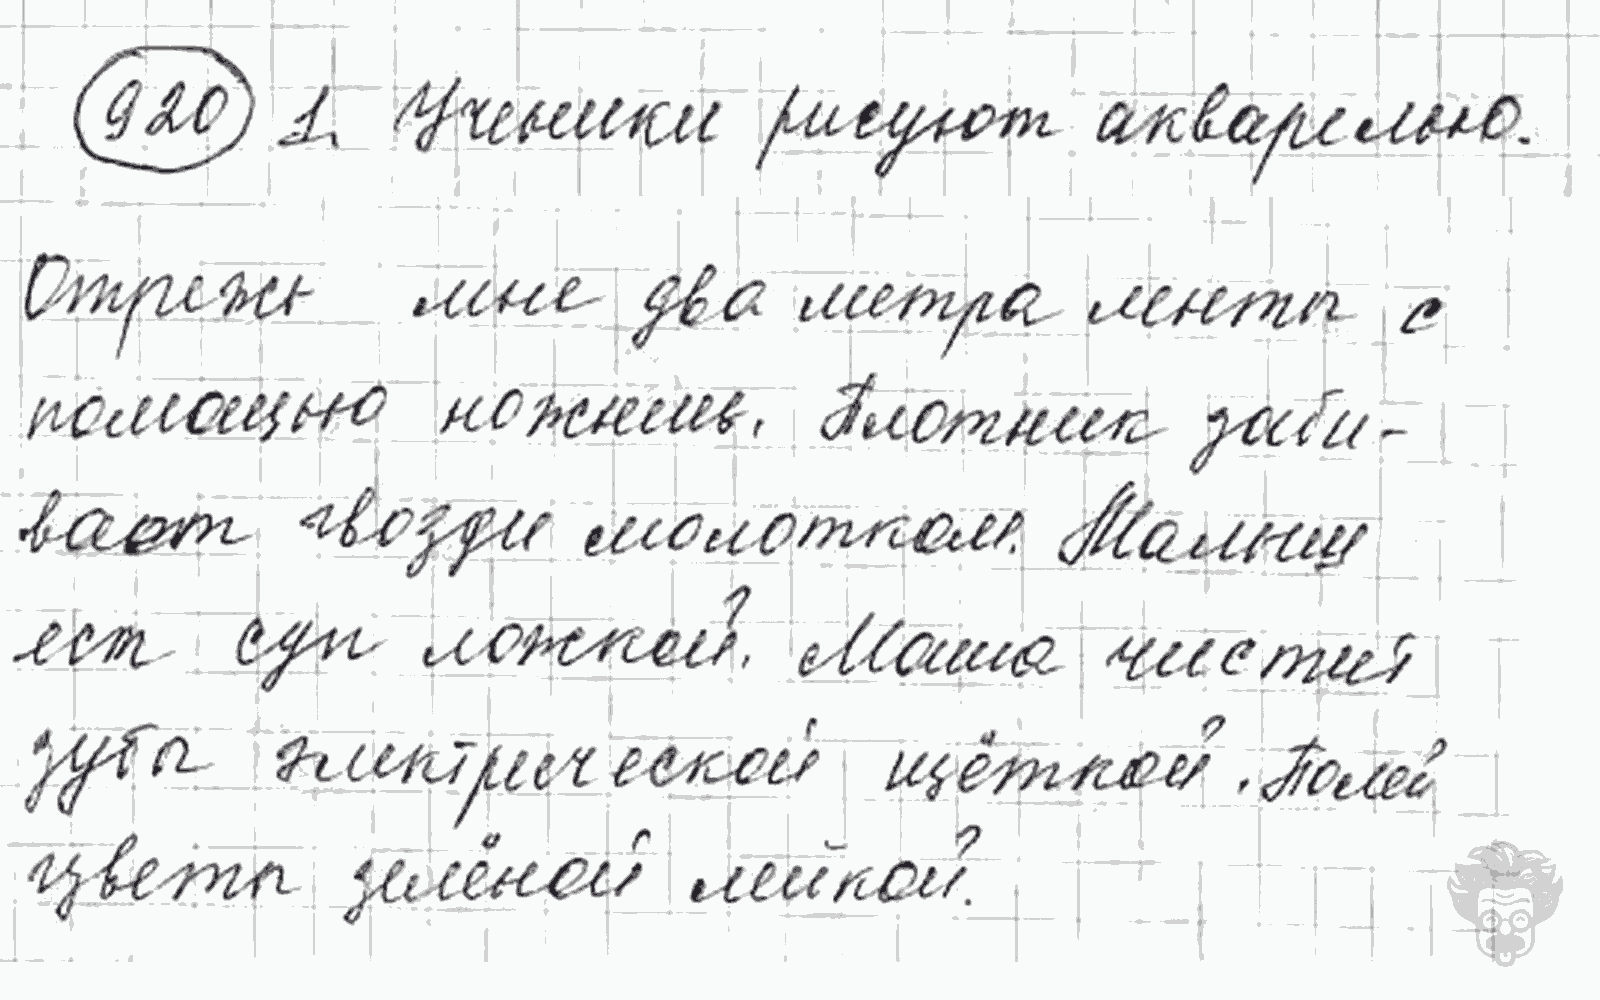 920 1. Ученики рисуют акварелью.
Отрежь мне два метра ленты с
помощью ножниц. Плотник заби-
вает гвозди молотком. Малыш
ест суп ложкой. Маша чистит
зубы электрической щёткой. Полей
цветы зелёной лейкой.